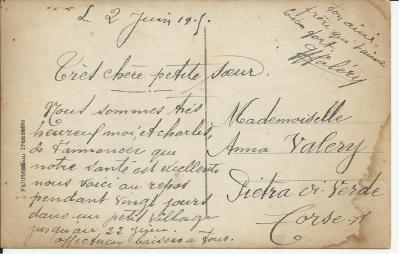 Le 2 Juin 19
Très chère petite sœur.
Nous sommes très
heureux moi, et charles,
de t'annoncer que
notre santé est excellente
nous voici au repos
pendant vingt jours
dans un petit village
jusqu'au 22 juin.
affectueux baisers a tous.
Ton ainé
frère qui t'aime
bien fort
Valéry
Mademoiselle
Anna Valery
Piétra di Verde
Corse